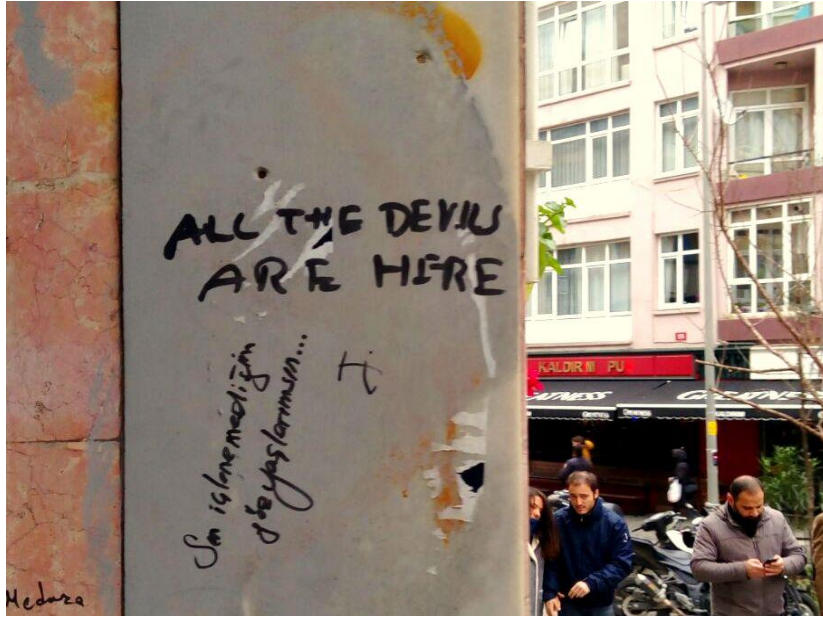 ALL THE DEVILS
ARE HERE
Sen içlenemediğim
göz yaşlarımsın...
Medusa
KALDIRIM PU
GREATNESS
GREATNESS